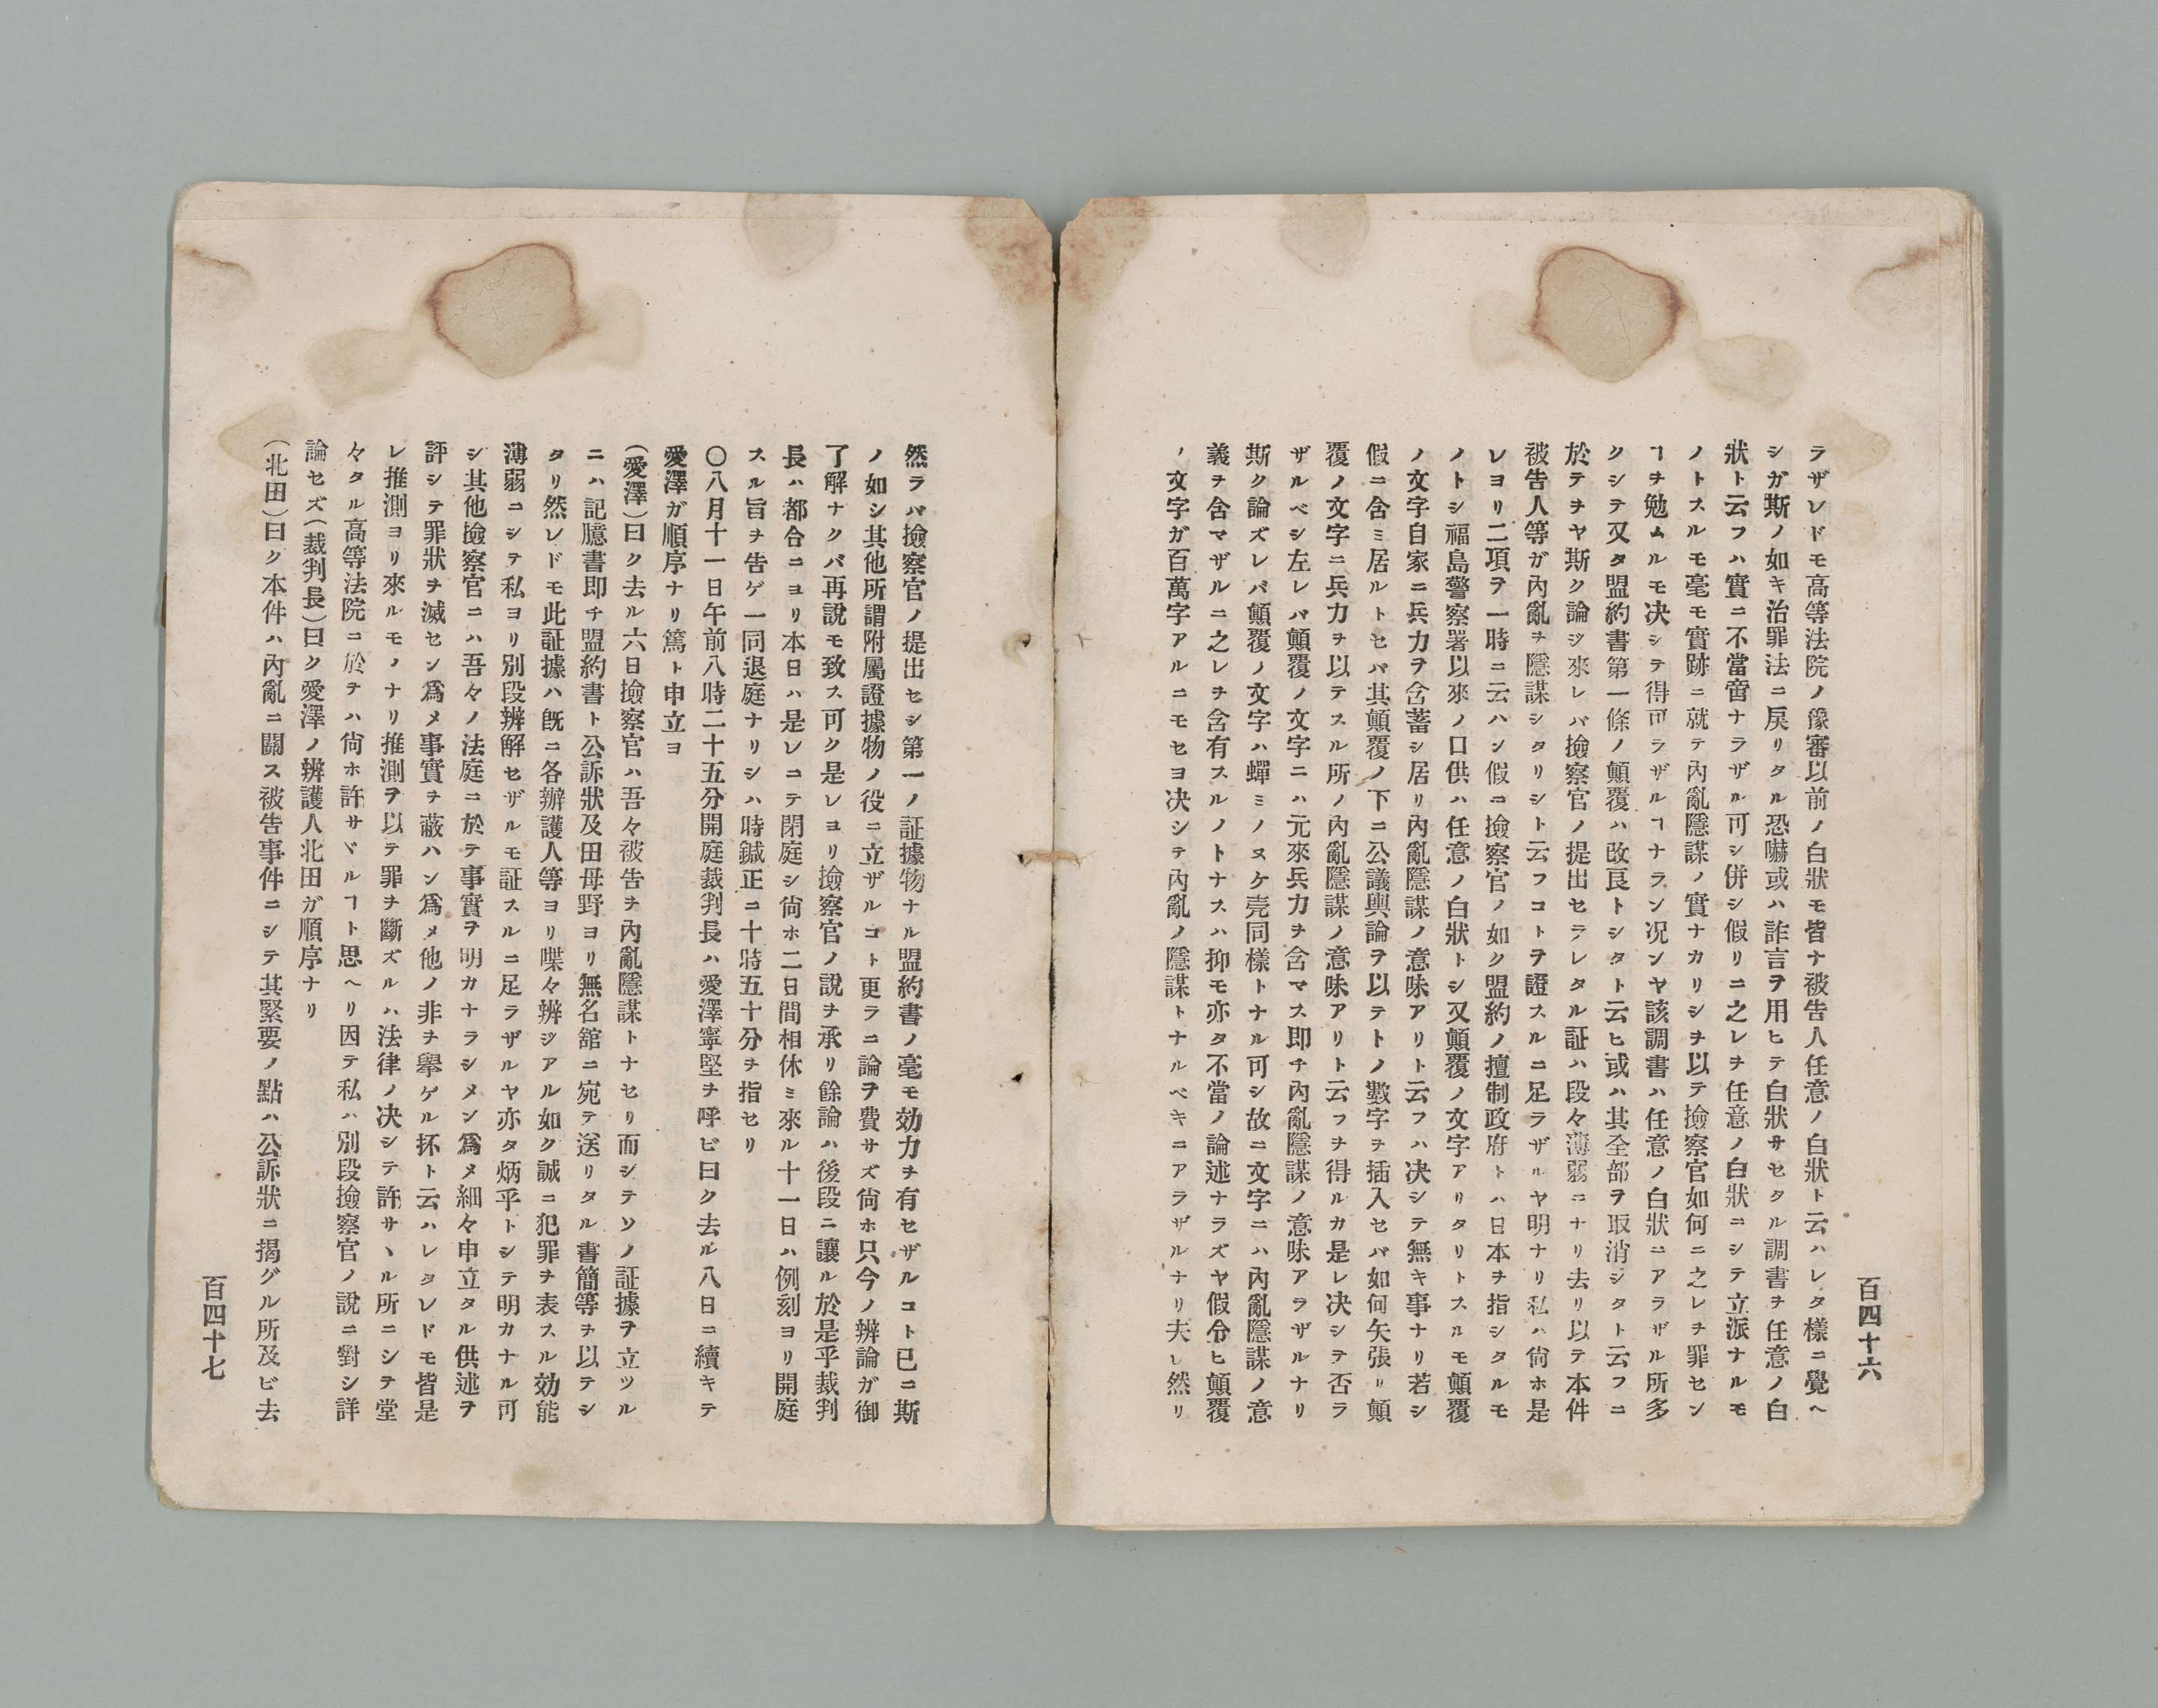 百四十六
ラザレドモ高等法院ノ豫審以前ノ白狀モ皆ナ被告人任意ノ白狀ト云ハレタ樣ニ覺ヘ
シガ斯ノ如キ治罪法ニ戾リタル恐嚇或ハ詐言ヲ用ヒテ白狀サセタル調書ヲ任意ノ白
狀ト云フハ實ニ不當啻ナラザル可シ併シ假リニ之レヲ任意ノ白狀ニシテ立派ナルモ
ノトスルモ毫モ實跡ニ就テ內亂隱謀ノ實ナカリシヲ以テ撿察官如何ニ之レヲ罪セン
ヿヲ勉ムルモ决シテ得可ラザルヿナラン况ンヤ該調書ハ任意ノ白狀ニアラザル所多
クシテ又タ盟約書第一條ノ顚覆ハ改良トシタト云ヒ或ハ其全部ヲ取消シタト云フニ
於テヲヤ斯ク論ジ來レバ撿察官ノ提出セラレタル証ハ段々薄弱ニナリ去リ以テ本件
被告人等ガ內亂ヲ隱謀シタリシト云フコトヲ證スルニ足ラザルヤ明ナリ私ハ尙ホ是
レヨリ二項ヲ一時ニ云ハン假ニ撿察官ノ如ク盟約ノ擅制政府トハ日本ヲ指シタルモ
ノトシ福島警察署以來ノ口供ハ任意ノ白狀トシ又顚覆ノ文字アリタリトスルモ顚覆
ノ文字自家ニ兵力ヲ含蓄シ居リ內亂隱謀ノ意味アリト云フハ决シテ無キ事ナリ若シ
假ニ含ミ居ルトセバ其顚覆ノ下ニ公議輿論ヲ以テトノ數字ヲ插入セバ如何矢張リ顚
覆ノ文字ニ兵力ヲ以テスル所ノ內亂隱謀ノ意味アリト云フヲ得ルカ是レ决シテ否ラ
ザルベシ左レバ顚覆ノ文字ニハ元來兵力ヲ含マス即チ內亂隱謀ノ意味アラザルナリ
斯ク論ズレバ顚覆ノ文字ハ蟬ミノヌケ壳同樣トナル可シ故ニ文字ニハ內亂隱謀ノ意
義ヲ含マザルニ之レヲ含有スルノトナスハ抑モ亦タ不當ノ論述ナラズヤ假令ヒ顚覆
ノ文字ガ百萬字アルニモセヨ决シテ內亂ノ隱謀トナルベキニアラザルナリ夫レ然リ
然ラバ撿察官ノ提出セシ第一ノ証據物ナル盟約書ノ毫モ効力ヲ有セザルコト已ニ斯
ノ如シ其他所謂附屬證據物ノ役ニ立ザルコト更ラニ論ヲ費サズ尙ホ只今ノ辨論ガ御
了解ナクバ再說モ致ス可ク是レヨリ撿察官ノ說ヲ承リ餘論ハ後段ニ讓ル於是乎裁判
長ハ都合ニヨリ本日ハ是レニテ閉庭シ尙ホ二日間相休ミ來ル十一日ハ例刻ヨリ開庭
スル旨ヲ告ゲ一同退庭ナリシハ時鍼正ニ十時五十分ヲ指セリ
〇八月十一日午前八時二十五分開庭裁判長ハ愛澤寧堅ヲ呼ビ曰ク去ル八日ニ續キテ
愛澤ガ順序ナリ篤ト申立ヨ
(愛澤)曰ク去ル六日撿察官ハ吾々被告ヲ內亂隱謀トナセリ而シテソノ証據ヲ立ツル
ニハ記臆書即チ盟約書ト公訴狀及田母野ヨリ無名舘ニ宛テ送リタル書簡等ヲ以テシ
タリ然レドモ此証據ハ旣ニ各辦護人等ヨリ喋々辨ジアル如ク誠ニ犯罪ヲ表スル効能
薄弱ニシテ私ヨリ別段辨解セザルモ証スルニ足ラザルヤ亦タ炳乎トシテ明カナル可
シ其他撿察官ニハ吾々ノ法庭ニ於テ事實ヲ明カナラシメン爲メ細々申立タル供述ヲ
評シテ罪狀ヲ滅セン爲メ事實ヲ蔽ハン爲メ他ノ非ヲ擧ケル抔ト云ハレタレドモ皆是
レ推測ヨリ來ルモノナリ推測ヲ以テ罪ヲ斷ズルハ法律ノ决シテ許サヽル所ニシテ堂
々タル高等法院ニ於テハ尙ホ許サヾルヿト思ヘリ因テ私ハ別段撿察官ノ說ニ對シ詳
論セズ(裁判長)曰ク愛澤ノ辨護人北田ガ順序ナリ
(北田)曰ク本件ハ內亂ニ關ス被告事件ニシテ其緊要ノ點ハ公訴狀ニ揭グル所及ビ去
百四十七